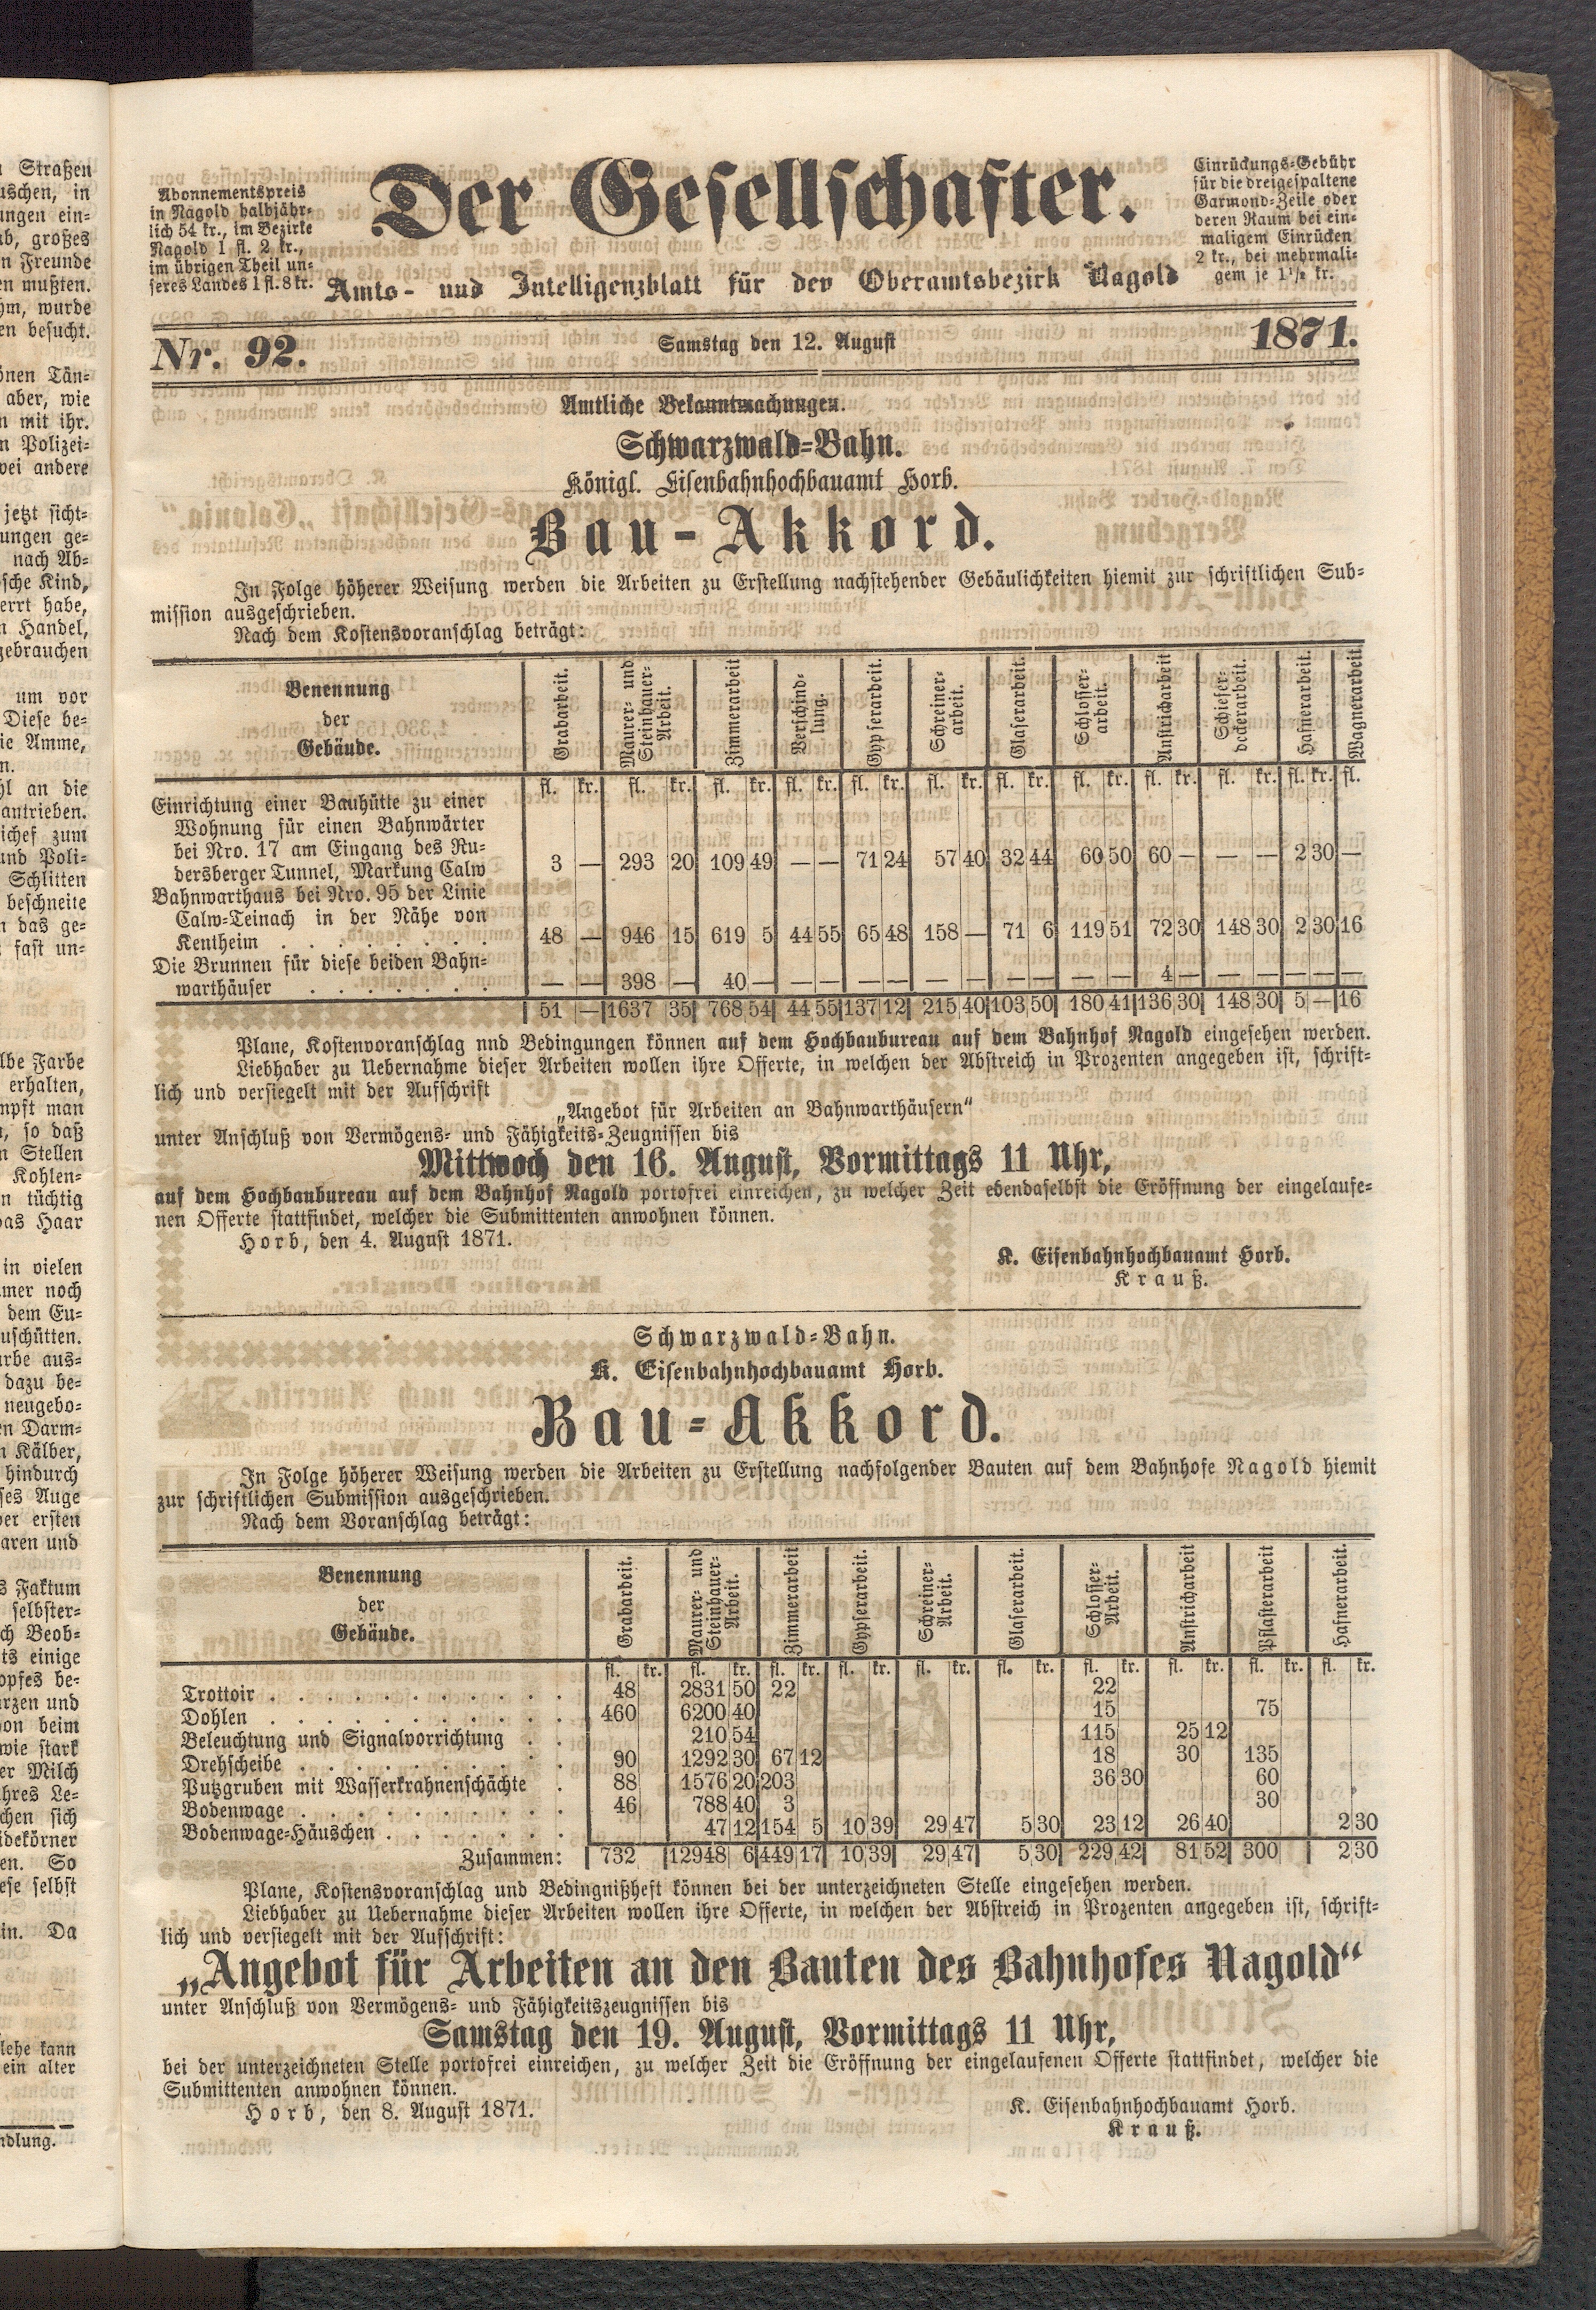 Straßen
uschen, in
ungen ein-
ab, großes
n Freunde
en mußten.
hm, wurde
en besucht.
önen Tän-
aber, wie
n mit ihr.
n Polizei-
wei andere
jetzt sicht-
ungen ge-
nach Ab-
sche Kind,
errt habe,
n Handel,
gebrauchen
um vor
Diese be-
ie Amme,
n.
hl an die
antrieben.
ichef zum
und Poli-
Schlitten
beschneite
n das ge-
fast un-
lbe Farbe
erhalten,
mpft man
n, so daß
n Stellen
Kohlen-
n tüchtig
das Haar
in vielen
mer noch
dem Eu-
uschütten.
arbe aus-
dazu be-
neugebo-
en Darm-
n Kälber,
hindurch
ses Auge
ver ersten
aren und
s Faktum
selbster-
ch Beob-
ts einige
opfes be-
rzen und
on beim
wie stark
er Milch
hres Le-
chen sich
idekörner
en. So
ese selbst
in. Da
lehe kann
ein alter
ndlung.
Abonnementspreis
in Nagold halbjähr-
lich 54 kr., im Bezirke
Nagold 1 fl. 2 kr.,
im übrigen Theil un-
seres Landes 1 fl. 8 kr.
Der Gesellschafter.
Amts- und Intelligenzblatt für den Oberamtsbezirk Nagold
Einrückungs-Gebühr
für die dreigespaltene
Garmond-Zeile oder
deren Raum bei ein-
maligem Einrücken
2 kr., bei mehrmali-
gem je 1½ kr.
Nr. 92. Samstag den 12. August 1871.
Amtliche Bekanntmachungen.
Schwarzwald-Bahn.
Königl. Eisenbahnhochbauamt Horb.
Bau-Akkord.
In Folge höherer Weisung werden die Arbeiten zu Erstellung nachstehender Gebäulichkeiten hiemit zur schriftlichen Sub-
mission ausgeschrieben.
Nach dem Kostensvoranschlag beträgt:
Benennung
der
Gebäude.
Grabarbeit.
Maurer- und
Steinhauer-
Arbeit.
Zimmerarbeit
Verschind-
lung.
Gypserarbeit.
Schreiner-
arbeit.
Glaserarbeit.
Schlosser-
arbeit.
Anstricharbeit
Schiefer-
deckerarbeit.
Hafnerarbeit.
Wagnerarbeit
fl. kr. fl. kr. fl. kr. fl. kr. fl. kr. fl. kr. fl. kr. fl. kr. fl. kr. fl. kr. fl. kr. fl.
Einrichtung einer Bauhütte zu einer
Wohnung für einen Bahnwärter
bei Nro. 17 am Eingang des Ru-
dersberger Tunnel, Markung Calw 3 — 293 20 109 49 — — 71 24 57 40 32 44 60 50 60 — — — 2 30 —
Bahnwarthaus bei Nro. 95 der Linie
Calw-Teinach in der Nähe von
Kentheim . . . . . . . . 48 — 946 15 619 5 44 55 65 48 158 — 71 6 119 51 72 30 148 30 2 30 16
Die Brunnen für diese beiden Bahn-
warthäuser . . . . . . . — — 398 — 40 — — — — — — — — — — — 4 — — — — — —
51 — 1637 35 768 54 44 55 137 12 215 40 103 50 180 41 136 30 148 30 5 — 16
Plane, Kostenvoranschlag nnd Bedingungen können auf dem Hochbaubureau auf dem Bahnhof Nagold eingesehen werden.
Liebhaber zu Uebernahme dieser Arbeiten wollen ihre Offerte, in welchen der Abstreich in Prozenten angegeben ist, schrift-
lich und versiegelt mit der Aufschrift
„Angebot für Arbeiten an Bahnwarthäusern“
unter Anschluß von Vermögens- und Fähigkeits-Zeugnissen bis
Mittwoch den 16. August, Vormittags 11 Uhr,
auf dem Hochbaubureau auf dem Bahnhof Nagold portofrei einreichen, zu welcher Zeit ebendaselbst die Eröffnung der eingelaufe-
nen Offerte stattfindet, welcher die Submittenten anwohnen können.
Horb, den 4. August 1871.
K. Eisenbahnhochbauamt Horb.
Krauß.
Schwarzwald-Bahn.
K. Eisenbahnhochbauamt Horb.
Bau-Akkord.
In Folge höherer Weisung werden die Arbeiten zu Erstellung nachfolgender Bauten auf dem Bahnhofe Nagold hiemit
zur schriftlichen Submission ausgeschrieben.
Nach dem Voranschlag beträgt:
Benennung
der
Gebäude.
Grabarbeit.
Maurer- und
Steinhauer-
Arbeit.
Zimmerarbeit
Gypserarbeit.
Schreiner-
Arbeit.
Glaserarbeit.
Schlosser-
Arbeit.
Anstricharbeit
Pflasterarbeit
Hafnerarbeit.
fl. kr. fl. kr. fl. kr. fl. kr. fl. kr. fl. kr. fl. kr. fl. kr. fl. kr. fl. kr.
Trottoir . . . . . . . . . . . 48 2831 50 22 22
Dohlen . . . . . . . . . . . 460 6200 40 15 75
Beleuchtung und Signalvorrichtung . . 210 54 115 25 12
Drehscheibe . . . . . . . . . . 90 1292 30 67 12 18 30 135
Putzgruben mit Wasserkrahnenschächte . 88 1576 20 203 36 30 60
Bodenwage . . . . . . . . . . 46 788 40 3 30
Bodenwage-Häuschen . . . . . . . 47 12 154 5 10 39 29 47 5 30 23 12 26 40 2 30
Zusammen: 732 12948 6 449 17 10 39 29 47 5 30 229 42 81 52 300 2 30
Plane, Kostensvoranschlag und Bedingnißheft können bei der unterzeichneten Stelle eingesehen werden.
Liebhaber zu Uebernahme dieser Arbeiten wollen ihre Offerte, in welchen der Abstreich in Prozenten angegeben ist, schrift-
lich und versiegelt mit der Aufschrift:
„Angebot für Arbeiten an den Bauten des Bahnhofes Nagold“
unter Anschluß von Vermögens- und Fähigkeitszeugnissen bis
Samstag den 19. August, Vormittags 11 Uhr,
bei der unterzeichneten Stelle portofrei einreichen, zu welcher Zeit die Eröffnung der eingelaufenen Offerte stattfindet, welcher die
Submittenten anwohnen können.
Horb, den 8. August 1871.
K. Eisenbahnhochbauamt Horb.
Krauß.